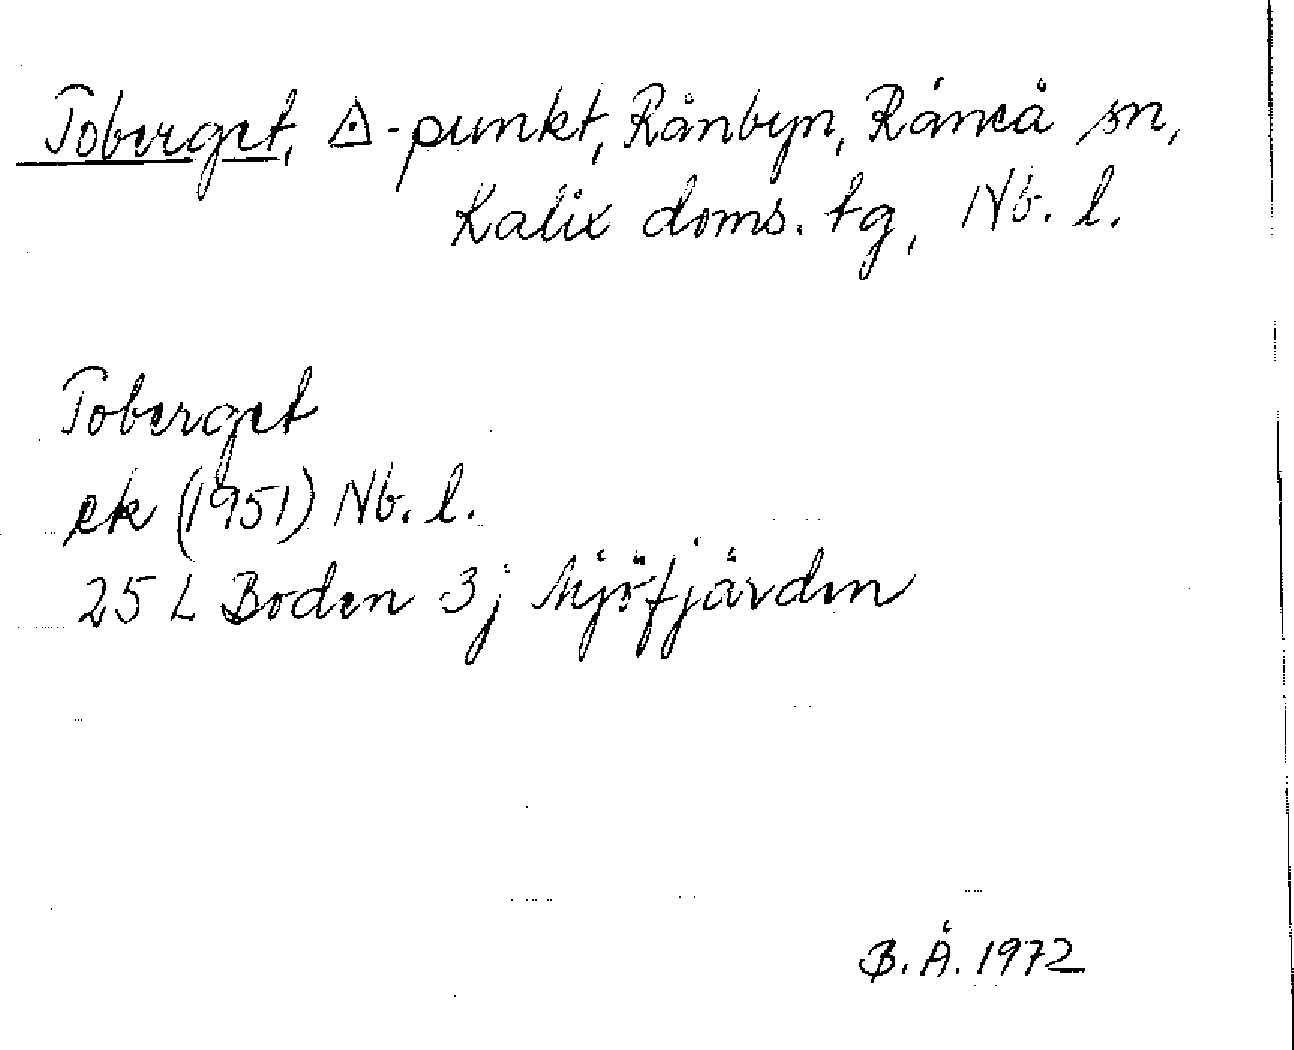 Toberget, ◬-punkt, Rånbyn, Råneå sn,
Kalix doms. tg, Nb. l.
Toberget
ek (1951) Nb. l.
25 L Boden 3j Mjöfjärden
B. Å. 1972